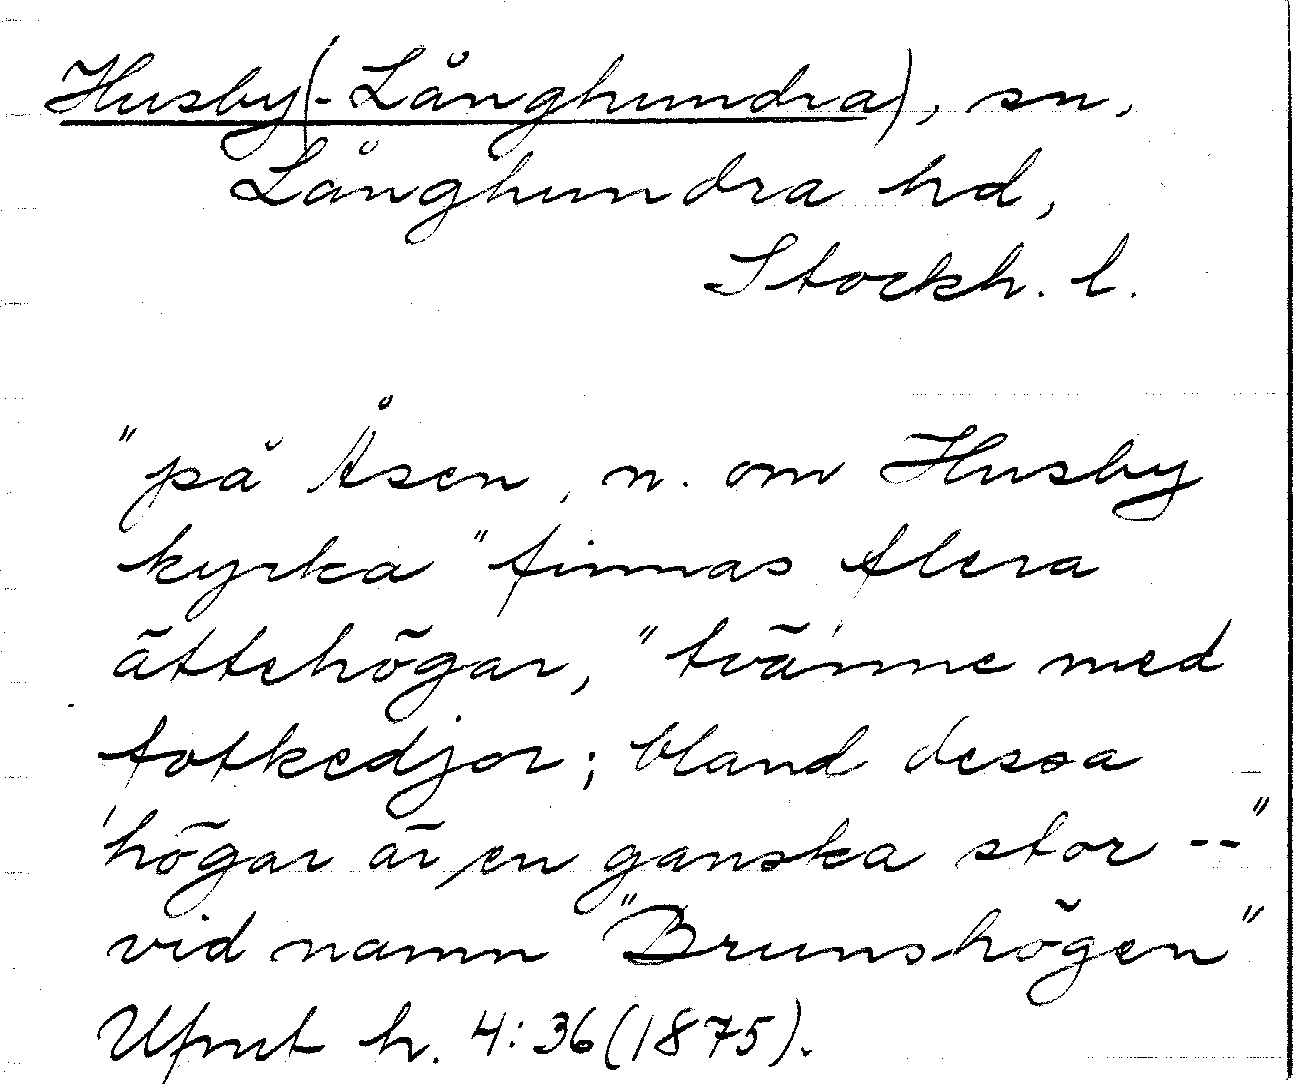 Husby(-Långhundra), sn,
Långhundra hd,
Stockh. l.
"på Åsen, n. om Husby
kyrka" finnas flera
ättehögar, "tvänne med
fotkedjor; bland dessa
högar är en ganska stor --"
vid namn "Brunshögen"
Ufmt h. 4:36(1875).